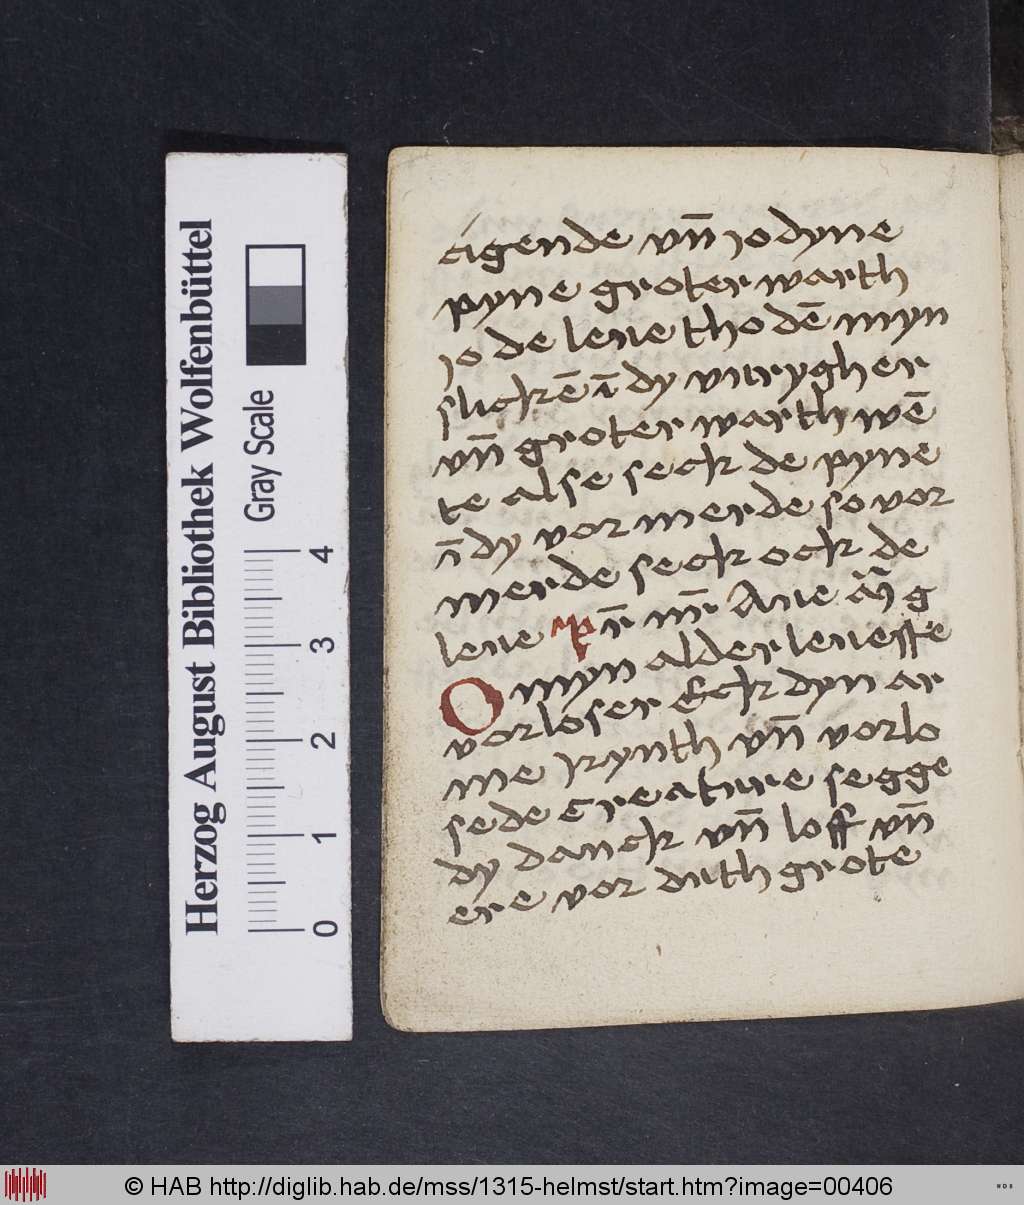 Herzog August Bibliothek Wolfenbüttel
Gray Scale
0 1 2 3 4
digende vn̄ jo dyne
pyne groter warth
jo de leue tho dē myn
slickē ī dy vurygher
vn̄ groter warth wē
te alse seck de pyne
ī dy vor merde so vor
merde seck ock de
leue pr̄ nr̄ Aue m̄ g
O myn alder leueste
vorloser Eck dyn ar
me kynth vn̄ vorlo
sede creature segge
dy danck vn̄ loff vn̄
ere vor duth grote
© HAB http://diglib.hab.de/mss/1315-helmst/start.htm?image=00406